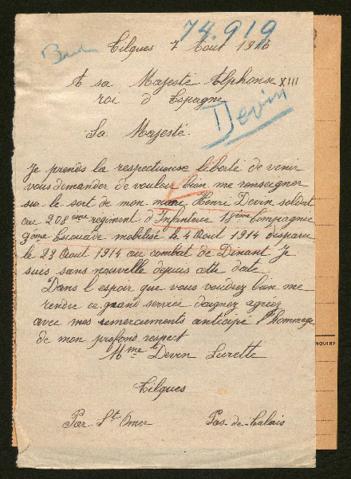 74.919
Tilques 7 Aout 1916
A sa Majesté Alphonse XIII
roi d'Espagne
Devin
Sa Majesté.
Je prends la respectueuse liberté de venir
vous demander de vouloir bien me renseigner
sur le sort de mon mari Henri Devin soldat
au 208eme regiment d'Infanterie 18eme Compagnie
mobilisé le 4 Aout 1914 disparu
le 23 Aout 1914 au combat de Dinant Je
suis sans nouvelle depuis cette date
Dans l'espoir que vous voudrez bien me
rendre ce grand service daignez agréez
avec mes remerciements anticipé l'hommage
de mon profons respect
Mme Devin Lurette
Tilques
Par St Omer Pas-de-Calais